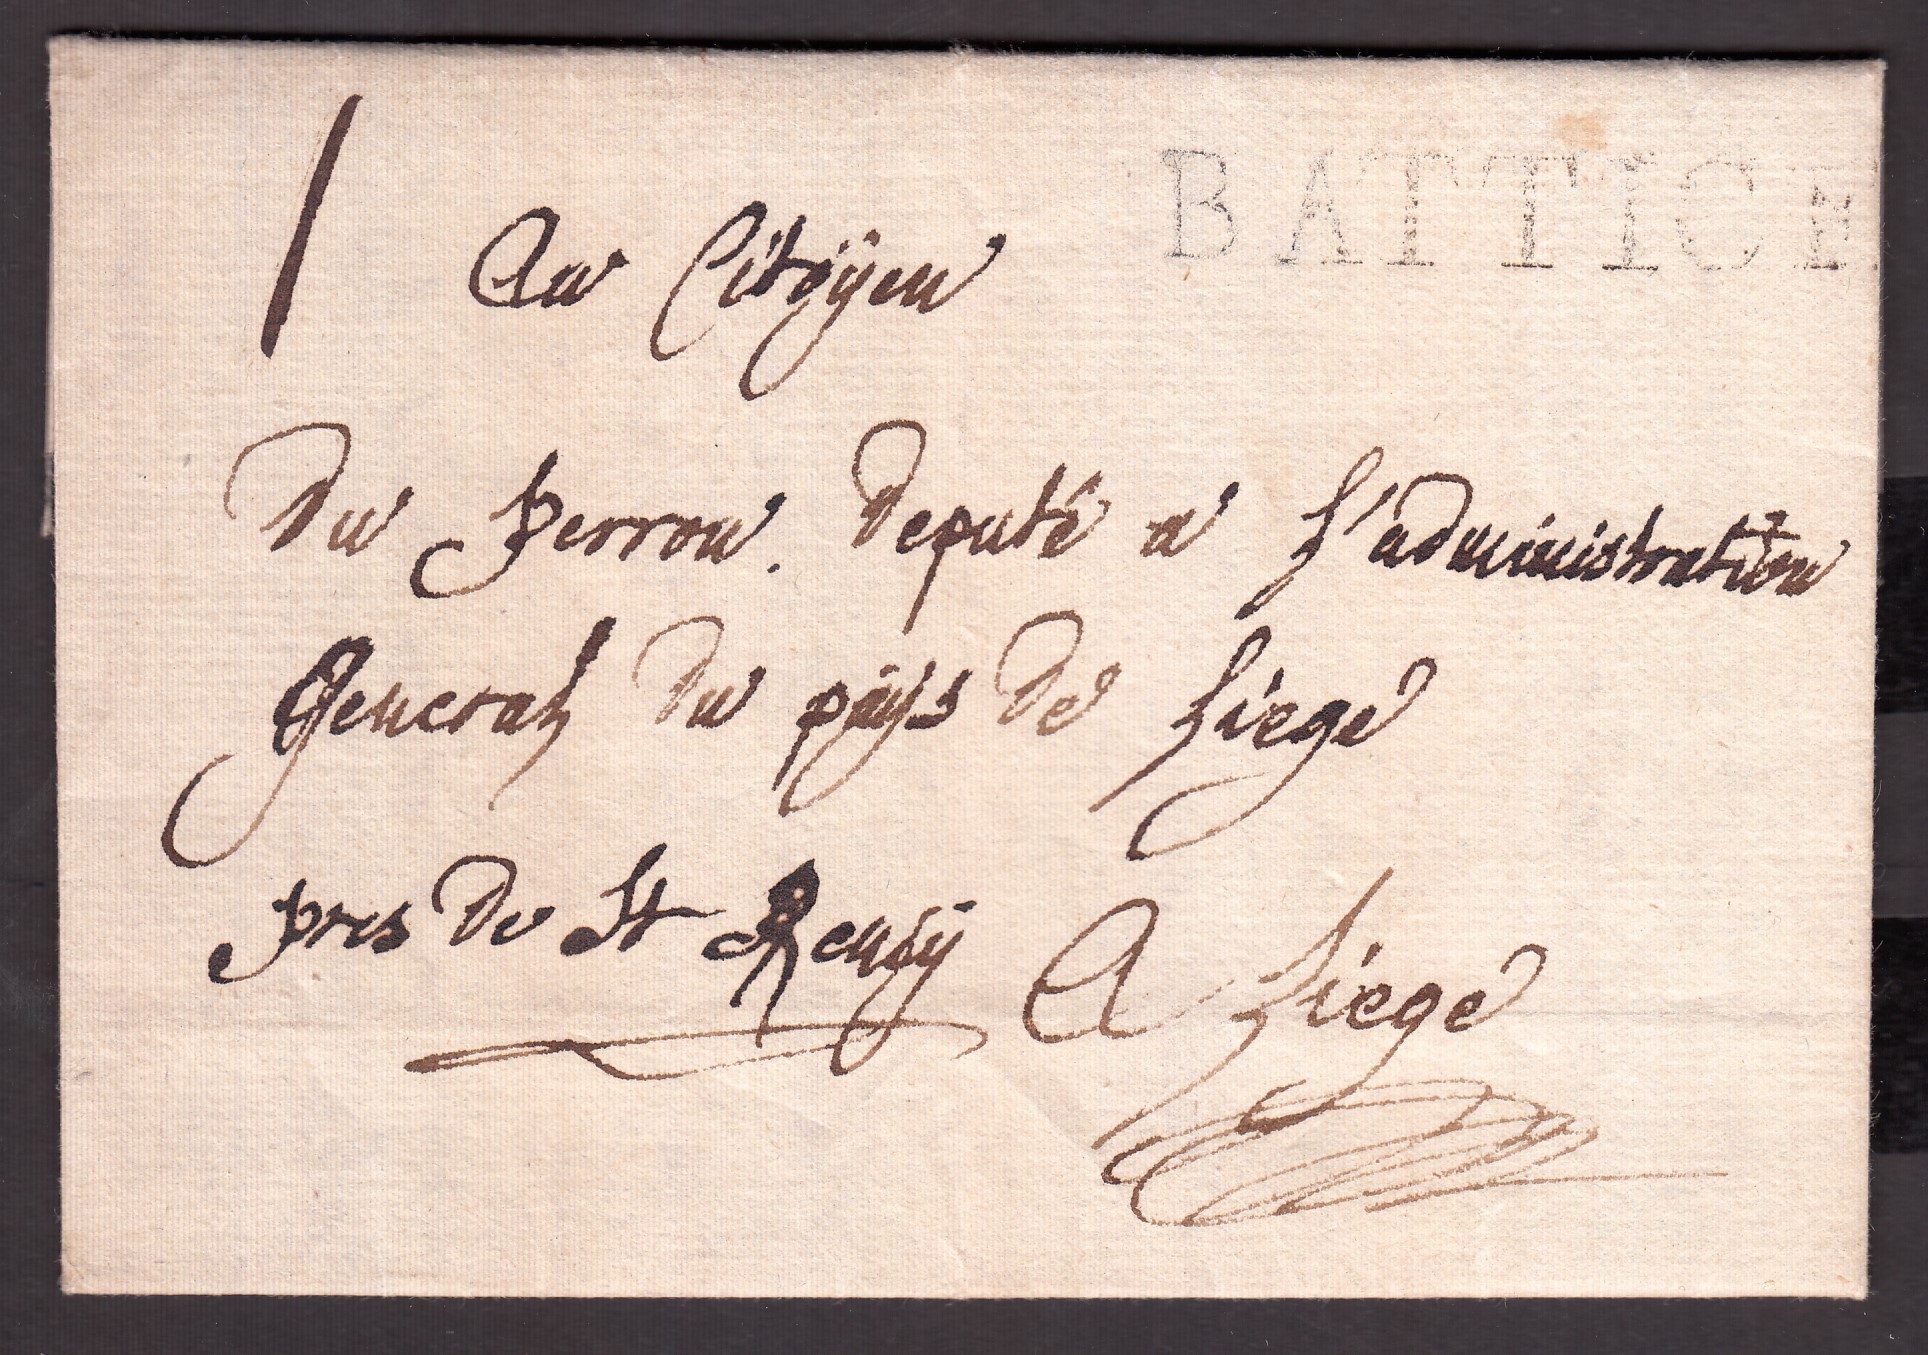 1
BATTICE
Au Citoÿen
Du perron. deputé a L'administration
General du païs de Liege
pres de St Remÿ
A Liege